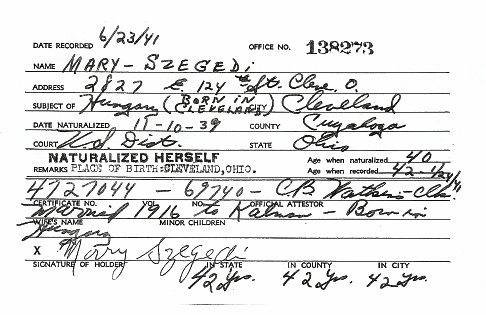 DATE RECORDED 6/23/41 OFFICE NO. 138273
NAME MARY - SZEGEDI
ADDRESS 2827 E. 124 th St. Cleve. O.
SUBJECT OF Hungary (BORN IN CLEVELAND) CITY Cleveland
DATE NATURALIZED 11-10-39 COUNTY Cuyahoga
COURT U.S. Dist. STATE Ohio
NATURALIZED HERSELF Age when naturalized 40
REMARKS PLACE OF BIRTH: CLEVELAND, OHIO. Age when recorded 42 - 1/24/41
4727044 - 69740 - CB Watkins - Clk.
CERTIFICATE NO. VOL. NO. OFFICIAL ATTESTOR
Married 1916 to Kalman - Born in
WIFE'S NAME MINOR CHILDREN
Hungary
X Mary Szegedi
SIGNATURE OF HOLDER IN STATE IN COUNTY IN CITY
42 Yrs. 42 Yrs. 42 Yrs.